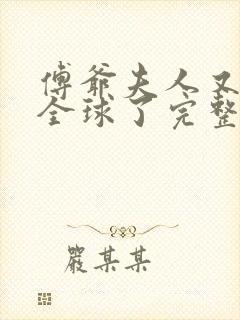 傅爺夫人又
全球了完整
嚴某某